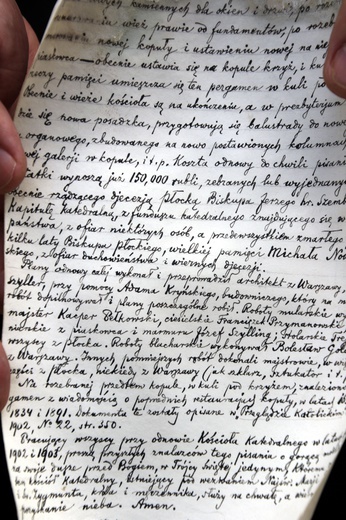 kamiennych dla okien i drzwi, po
wieże prawie od fundamentów, po rozeb
nowej kopuły i ustawieniu nowej na
obecnie ustawia się na kopule krzyż, i
pamięci umieszcza się ten pergamen w kuli po
Obecnie i wieże kościoła są na ukończeniu, a w prezbyterjum
się nowa posadzka, przygotowują się balustrady do nowe
organowego, zbudowanego na nowo postawionych kolumnach
galerji w kopule, i t. p. Koszta odnowy do chwili pisania
wynoszą już 150,000 rubli, zebranych lub wyjednanych
obecnie rządzącego djecezją płocką Biskupa Jerzego hr. Szemb
Kapitułę katedralną, z funduszu katedralnego znajdującego się w
państwa, z ofiar niektórych osób, a przedewszystkiem zmarłego
kilku laty Biskupa płockiego, wielkiej pamięci Michała No
skiego, z ofiar duchowieństwa i wiernych djecezji.
Plany odnowy całej wykonał i przeprowadził architekt z Warszawy
Szyller, przy pomocy Adama Kryńskiego, budowniczego, który na m
robót dopilnowywał i plany poszczególne robił. Roboty mularskie wy
majster Kasper Pitkoński, ciesielskie Franciszek Przymanowski
z piaskowca i marmuru Józef Szylling i Hotarski
wszyscy z Płocka. Roboty blacharskie wykonywał Bolesław
z Warszawy. Innych, pomniejszych robót dokonali majstrowie, w wię
części z Płocka, niekiedy z Warszawy (jak szklarz, sztukator i
Na rozebranej przedtem kopule, w kuli pod krzyżem, znaleziono
gamen z wiadomością o poprzednich restauracjach kopuły, w latach
1834 i 1891. Dokumenta te zostały opisane w Przeglądzie Katolickim
1902, № 22, str. 350.
Pracujący wszyscy przy odnowie Kościoła Katedralnego w latach
1902 i 1903, proszą przyszłych znalazców tego pisania o gorącą modl
za swoje dusze przed Bogiem, w Trójcy Świętej jedynym,
ten kościół Katedralny, istniejący pod wezwaniem Najśw. Marji
i św. Zygmunta, króla i męczennika, służy na chwałę, a wiern
pozyskanie nieba. Amen.